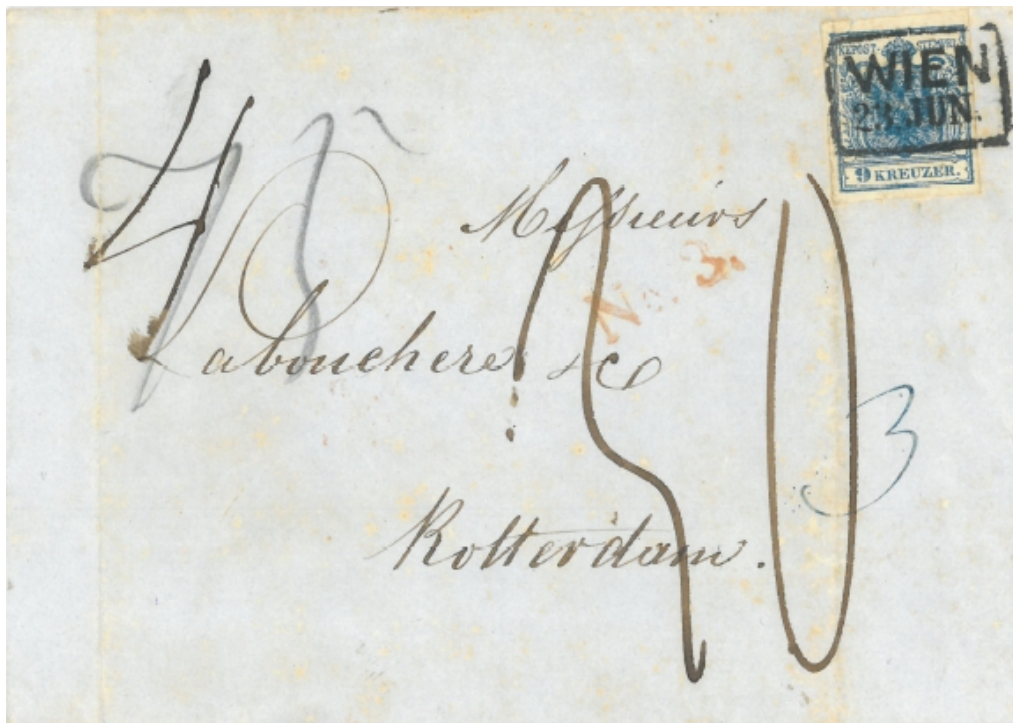 WIEN
23 JUN.
9 KREUZER.
Messieurs
No. 3.
Labouchere & C
3
Rotterdam.